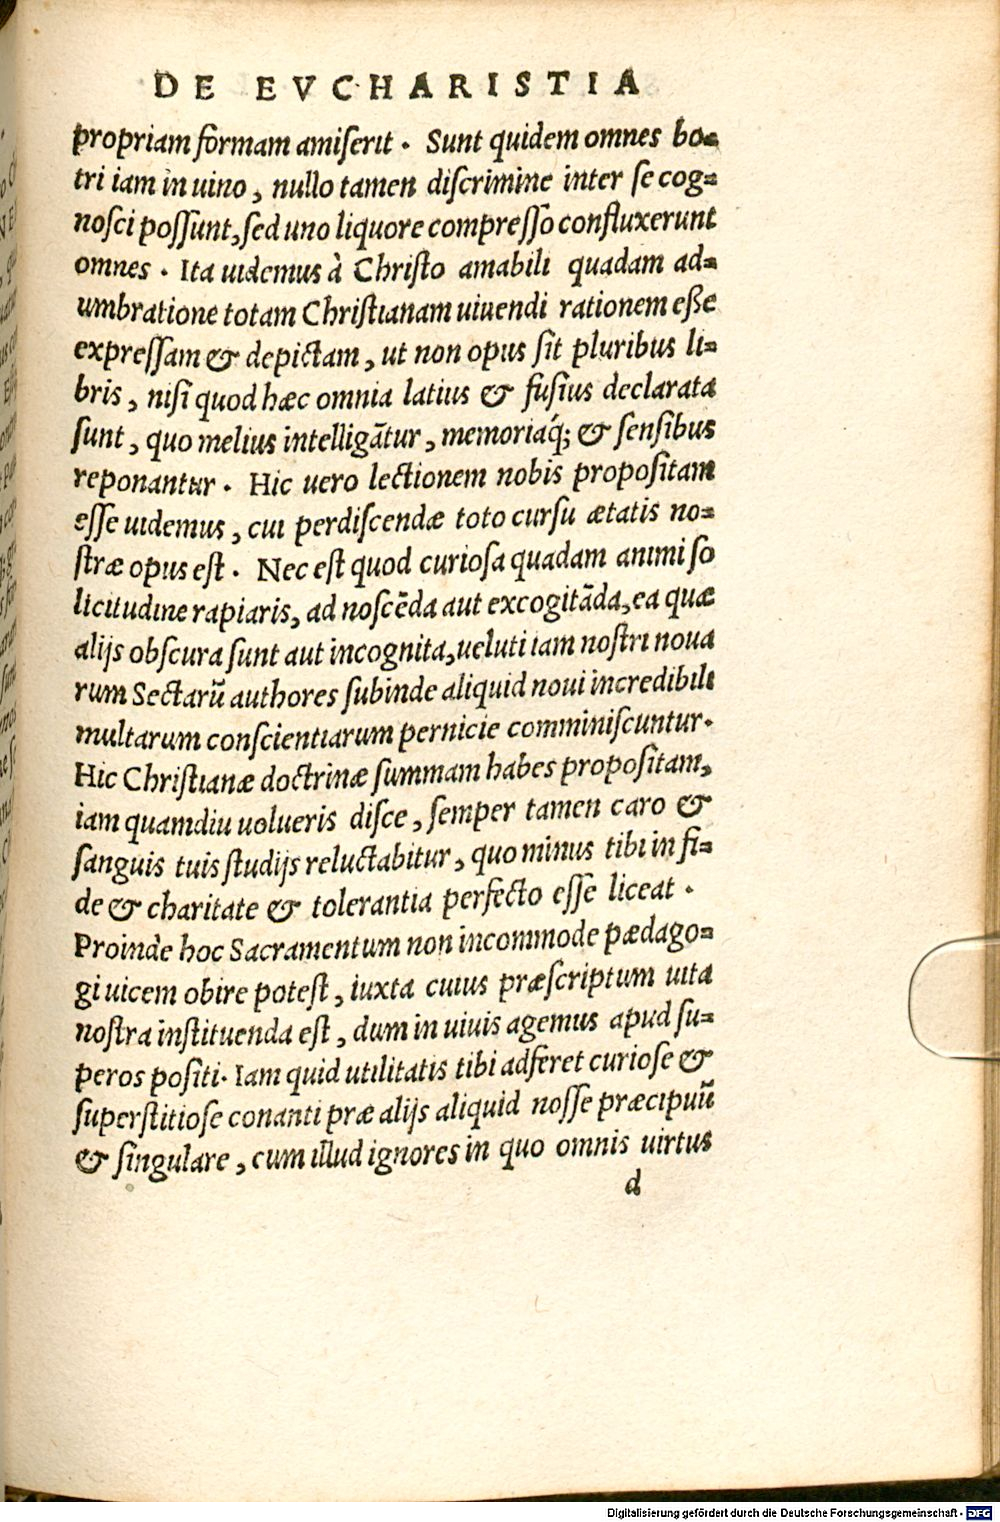 DE EVCHARISTIA
propriam formam amiſerit . Sunt quidem omnes bo-
tri iam in uino , nullo tamen diſcrimine inter ſe cog-
noſci poſſunt, ſed uno liquore compreſſo confluxerunt
omnes . Ita uidemus à Chriſto amabili quadam ad-
umbratione totam Chriſtianam uiuendi rationem eſße
expreſſam & depictam , ut non opus ſit pluribus li-
bris , niſi quod hæc omnia latius & fuſius declarata
ſunt , quo melius intelligãtur , memoriaq́; & ſenſibus
reponantur . Hic uero lectionem nobis propoſitam
eſſe uidemus , cui perdiſcendæ toto curſu ætatis no-
ſtræ opus eſt . Nec est quod curioſa quadam animi ſo
licitudine rapiaris, ad noſcẽda aut excogitãda, ea quæ
alijs obſcura ſunt aut incognita, ueluti iam noſtri noua
rum Sectarũ authores ſubinde aliquid noui incredibili
multarum conſcientiarum pernicie comminiſcuntur.
Hic Chriſtianæ doctrinæ ſummam habes propoſitam,
iam quamdiu uolueris diſce , ſemper tamen caro &
ſanguis tuis ſtudijs reluctabitur , quo minus tibi in fi-
de & charitate & tolerantia perfecto eſſe liceat .
Proinde hoc Sacramentum non incommode pædago-
gi uicem obire poteſt , iuxta cuius præſcriptum uita
noſtra inſtituenda eſt , dum in uiuis agemus apud ſu-
peros poſiti. Iam quid utilitatis tibi adferet curioſe &
ſuperſtitioſe conanti præ alijs aliquid noſſe præcipuũ
& ſingulare , cum illud ignores in quo omnis uirtus
d
Digitalisierung gefördert durch die Deutsche Forschungsgemeinschaft - DFG